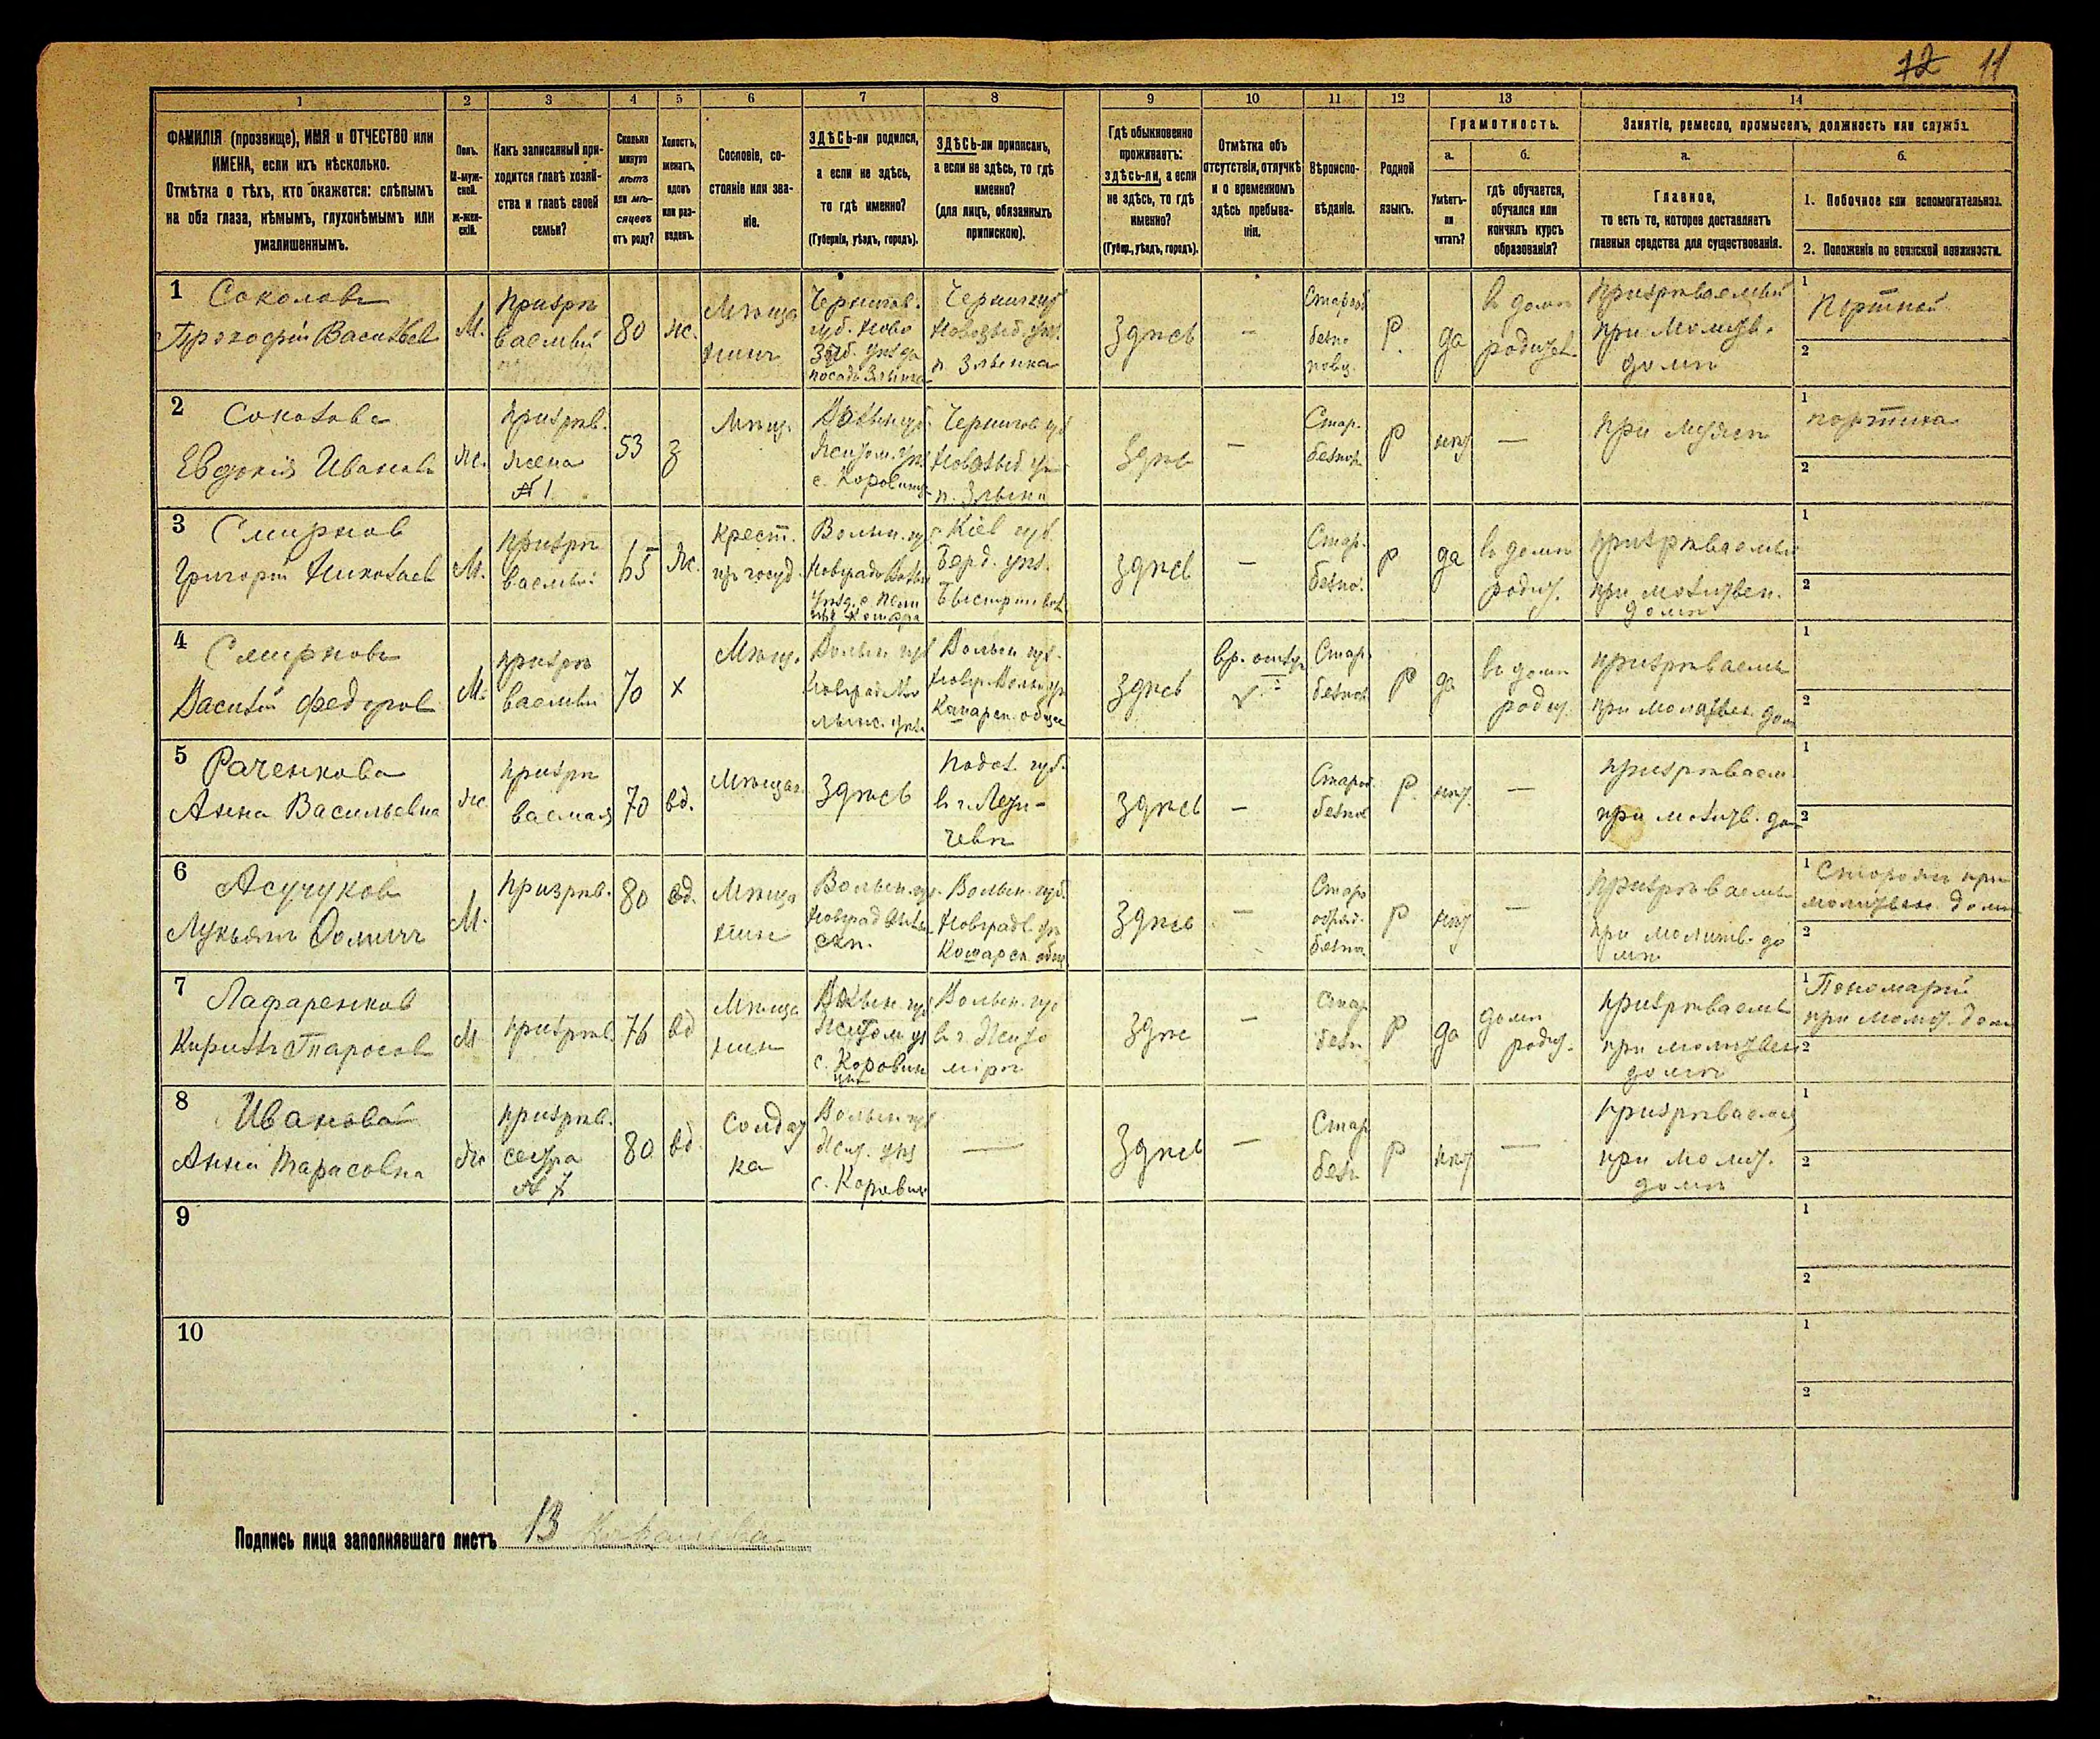 12 11
1 2 3 4 5 6 7 8 9 10 11 12 13 14
ФАМИЛІЯ (прозвище), ИМЯ и ОТЧЕСТВО или
ИМЕНА, если ихъ нѣсколько.
Отмѣтка о тѣхъ, кто окажется: слѣпымъ
на оба глаза, нѣмымъ, глухонѣмымъ или
умалишеннымъ.
Полъ.
М-муж-
ской.
Ж-жен-
скій.
Какъ записанный при-
ходится главѣ хозяй-
ства и главѣ своей
семьи?
Сколько
минуло
лѣтъ
или мѣ-
сяцевъ
отъ роду?
Холостъ,
женатъ,
вдовъ
или раз-
веденъ.
Сословіе, со-
стояніе или зва-
ніе.
ЗДѢСЬ-ли родился,
а если не здѣсь,
то гдѣ именно?
(Губернія, уѣздъ, городъ).
ЗДѢСЬ-ли приписанъ,
а если не здѣсь, то гдѣ
именно?
(для лицъ, обязанныхъ
припискою).
Гдѣ обыкновенно
проживаетъ:
здѣсь-ли, а если
не здѣсь, то гдѣ
именно?
(Губер., уѣздъ, городъ).
Отмѣтка объ
отсутствіи, отлучкѣ
и о временномъ
здѣсь пребыва-
ніи.
Вѣроиспо-
вѣданіе.
Родной
языкъ.
Грамотность.
а.
Умѣетъ-
ли
читать?
б.
гдѣ обучается,
обучался или
кончилъ курсъ
образованія?
Занятіе, ремесло, промыселъ, должность или служба.
а.
Главное,
то есть то, которое доставляетъ
главныя средства для существованія.
б.
1. Побочное или вспомогательное.
2. Положеніе по воинской повинности.
1 Соколовъ
Прокофій Васильев
М.
Призрѣ
ваемый
80
ж.
Мѣща
нинъ
Чернигов.
губ. Ново
Зыб. уѣзда
посадъ Злынка
Чернигов губ
Новозыб. уѣз.
п. Злынка
Здѣсь
—
Старооб
безпо
повщ.
Р.
да
въ домѣ
родител.
Призрѣваемый
при Молитв.
домѣ
1 Портной
2
2 Соколова
Евдокія Иванов
Ж.
Призрѣв.
жена
№ 1
53
з
Мѣщ.
Волын губ.
Житом. уѣз
с. Коровинц
Чернигов губ
Новозыб уѣз
п. Злынки
Здѣсь
—
Стар.
безпоп.
Р
нѣт
—
при мужѣ
1 портниха
2
3 Смирнов
Григорій Николаев
М.
Призрѣ
ваемый
65
Ж.
Крест.
из госуд.
Волын. губ
Киев губ.
Берд. уѣз.
Здѣсь
—
Стар.
безпо.
Р
да
въ домѣ
родит.
призрѣваемый
при молитвен.
домѣ
1
2
4 Смирновъ
Василій Федоров
М.
призрѣ
ваемый
70
х
Мѣщ.
Волын губ
Волын губ.
Здѣсь
вр. отлуч
Стар
безпоп
Р
да
въ домѣ
родит.
призрѣваемы
при молитвен. дом
1
2
5 Раченкова
Анна Васильевна
Ж
призрѣ
ваемая
70
вд.
Мѣщан.
Здѣсь
Подол. губ.
въ г. Лети-
чевѣ
Здѣсь
—
Старооб.
безпоп
Р.
нѣт.
—
призрѣваем
при молитв. дом
1
2
6 Асучуков
Лукьянъ Фомичъ
М.
Призрѣв.
80
вд.
Мѣща
нинъ
Волын. губ.
Волын. губ.
Здѣсь
—
Старо
обряд.
безпо
Р
нѣт
—
призрѣваемы
при молитв. до
мѣ
1 Сторожъ при
молитвен. домѣ
2
7 Лафаренков
Кирилъ Тарасов
М
призрѣв
76
вд
Мѣща
нинъ
Волын. губ
Житом уѣ
с. Коровин
цы
Волын. губ
въ г. Жито
мірѣ
Здѣс
—
Стар
безп
Р
да
домѣ
родит.
призрѣваемы
при молитвен
домѣ
1 Пономарій
при молит. дом
2
8 Иванова
Анна Тарасовна
Ж
призрѣв.
сестра
№ 7
80
вд
Солдат
ка
Волын. губ
Жит. уѣз
с. Коровин
—
Здѣсь
—
Стар
безп
Р
нѣт
—
призрѣваемая
при молит.
домѣ
1
2
9
1
2
10
1
2
Подпись лица заполнявшаго листъ